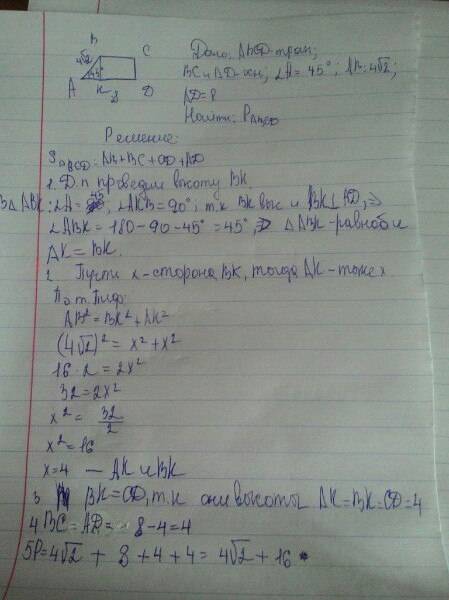 B
C
4√2
45°
A K D
8
Дано: ABCD-трап;
BC и AD-осн; ∠A = 45°; AB=4√2;
AD=8
Найти: P ABCD
Решение:
P ABCD = AB+BC+CD+AD
1. Д.п проведём высоту BK.
В △ ABK: ∠A = 45°, ∠AKB = 90°; т.к BK выс и BK⊥AD, ⇒
∠ABK = 180-90-45° = 45°, ⇒ △ ABK-равноб и
AK = BK.
2. Пусть x-сторона BK, тогда AK-тоже x
По т. Пиф:
AB² = BK² + AK²
(4√2)² = x² + x²
16·2 = 2x²
32 = 2x²
x² = 32/2
x² = 16
x=4 — AK и BK
3 BK=CD, т.к они высоты AK=BK=CD=4
4 BC = AD = 8-4=4
5P=4√2 + 8 + 4 + 4 = 4√2 + 16